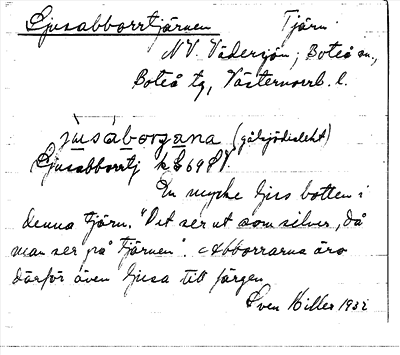 Ljusabborrtjärnen Tjärn
NV. Vädersjön, Boteå sn.,
Boteå tg, Västernorrl. l.
jusaborgana (gålsjödialekt)
Ljusabborrtj
En mycke ljus botten i
denna tjärn. "Det ser ut som silver, då
man ser på tjärnen". Abborrarna äro
därför även ljusa till färgen
Sven Hiller 1932